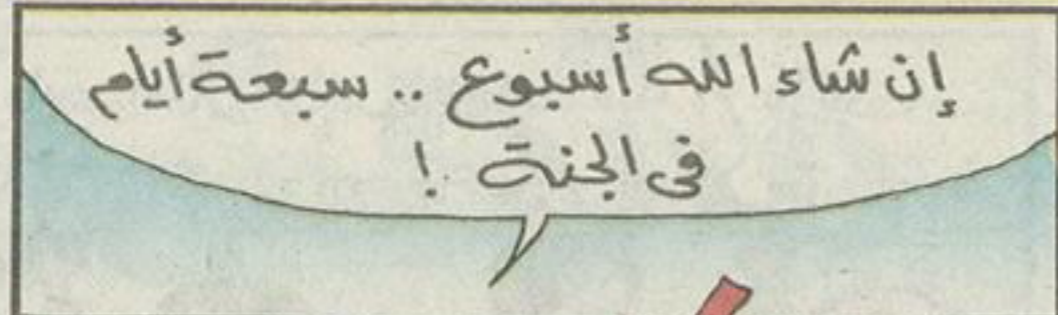 إن شاء الله أسبوع .. سبعة أيام
فى الجنة !